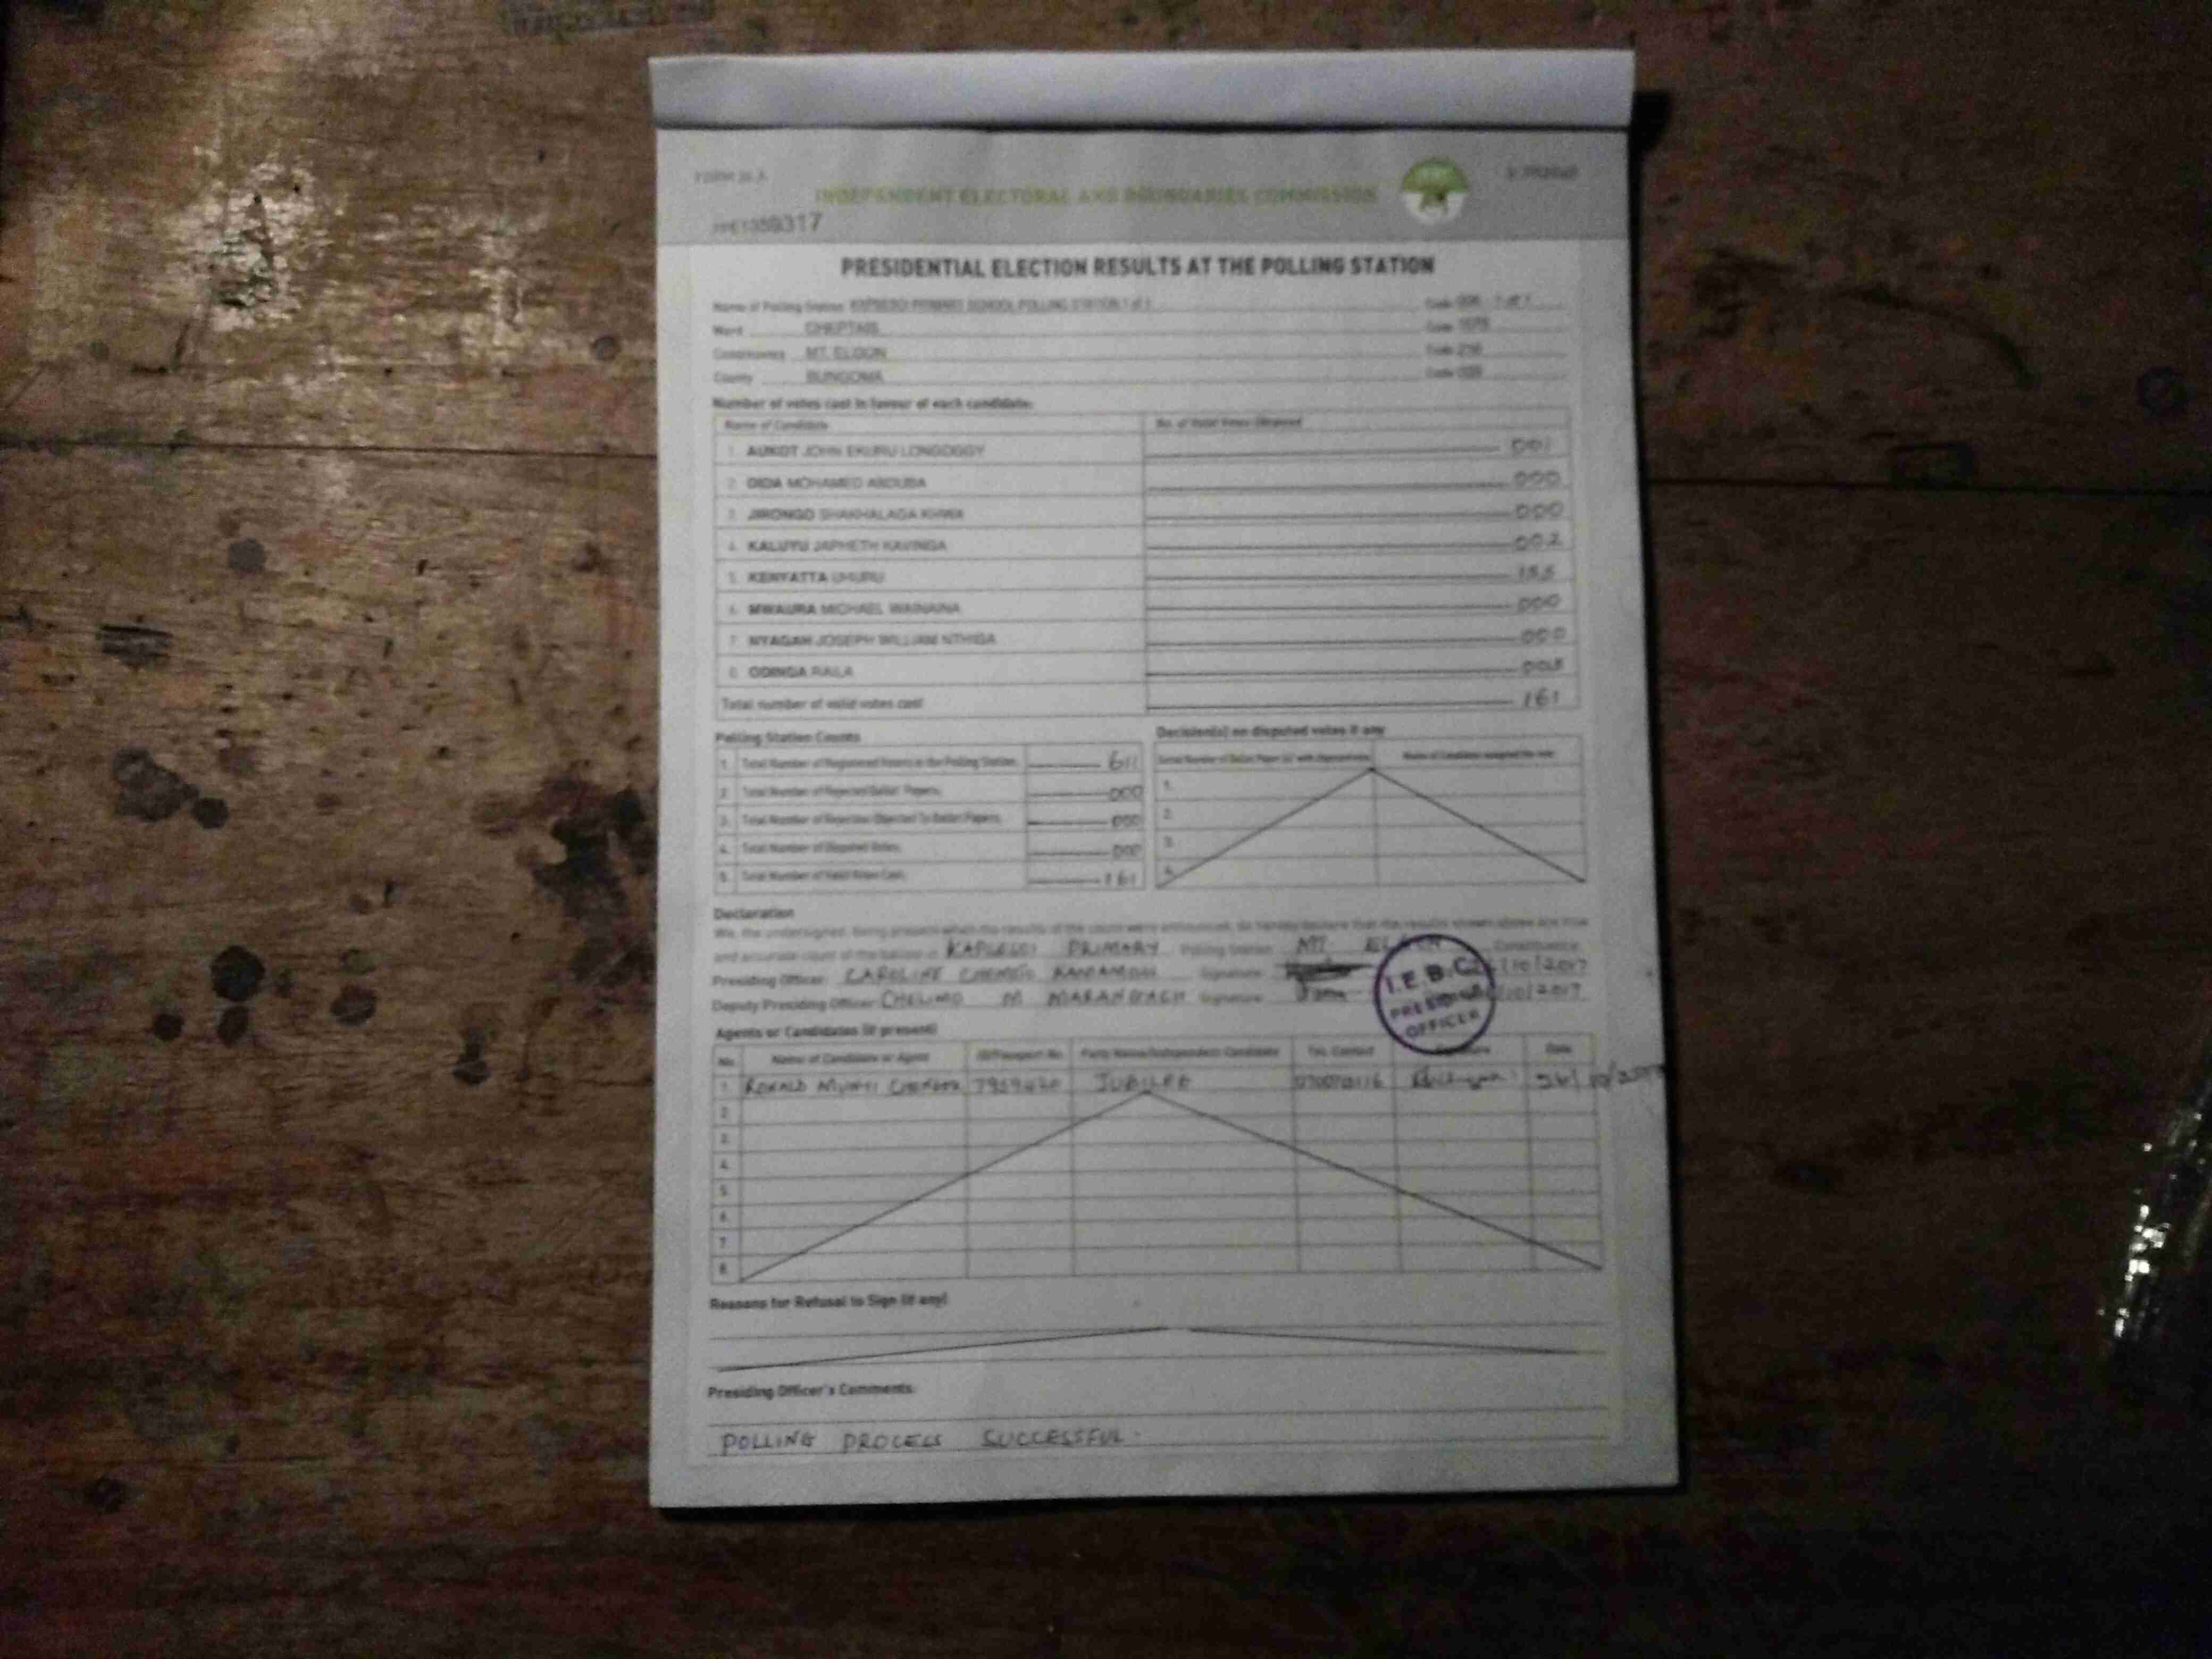 FORM 34 A
INDEPENDENT ELECTORAL AND BOUNDARIES COMMISSION
PRESIDENTIAL ELECTION RESULTS AT THE POLLING STATION
Name of Polling Station PRIMARY SCHOOL POLLING STATION 1 of 1 Code 1 of 1
Ward CHEPTAIS Code
Constituency MT. ELGON Code
County BUNGOMA Code
Number of votes cast in favour of each candidate:
Name of Candidate No. of Valid Votes Obtained
1. AUKOT JOHN EKURU LONGOGGY 001
2. DIDA MOHAMED ABDUBA 000
3. JIRONGO SHAKHALAGA KHWA 000
4. KALUYU JAPHETH KAVINGA 002
5. KENYATTA UHURU 155
6. MWAURA MICHAEL WAINAINA 000
7. NYAGAH JOSEPH WILLIAM NTHIGA 000
8. ODINGA RAILA 003
Total number of valid votes cast 161
Polling Station Counts
1. Total Number of Registered Voters in the Polling Station 611
2. Total Number of Rejected Ballot Papers 000
3. Total Number of Rejection Objected To Ballot Papers 000
4. Total Number of Disputed Votes 000
5. Total Number of Valid Votes Cast 161
Decision(s) on disputed votes if any
Serial Number of Ballot Paper (s) Name of Candidate
1.
2.
3.
4.
Declaration
We, the undersigned, being present when the results of the count were announced, do hereby declare that the results shown above are true
and accurate count of the ballots in PRIMARY Polling Station MT. ELGON Constituency
Presiding Officer: CAROLINE Signature: /10/2017
Deputy Presiding Officer: CHELIMO M Signature: /10/2017
I.E.B.C
PRESIDING
OFFICER
Agents or Candidates (if present)
No. Name of Candidate or Agent ID/Passport No. Party Name/Independent Candidate Tel. Contact Signature Date
1. RONALD JUBILEE 26/10/2017
2.
3.
4.
5.
6.
7.
8.
Reasons for Refusal to Sign (if any)
Presiding Officer's Comments:
POLLING PROCESS SUCCESSFUL.